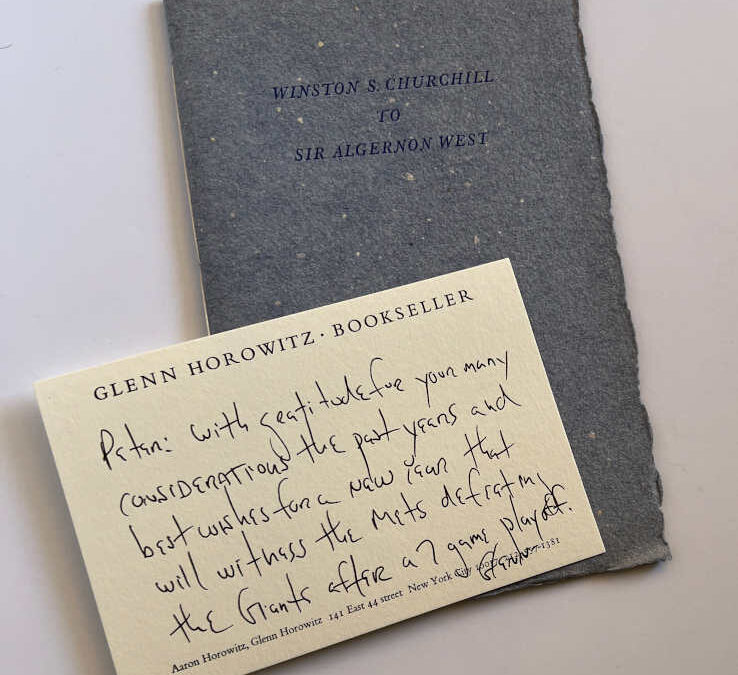 WINSTON S. CHURCHILL
TO
SIR ALGERNON WEST
GLENN HOROWITZ · BOOKSELLER
Peter: with gratitude for your many
considerations the past years and
best wishes for a new year that
will witness the Mets defeating
the Giants after a 7 game playoff.
Glenn
Aaron Horowitz, Glenn Horowitz 141 East 44 street New York City